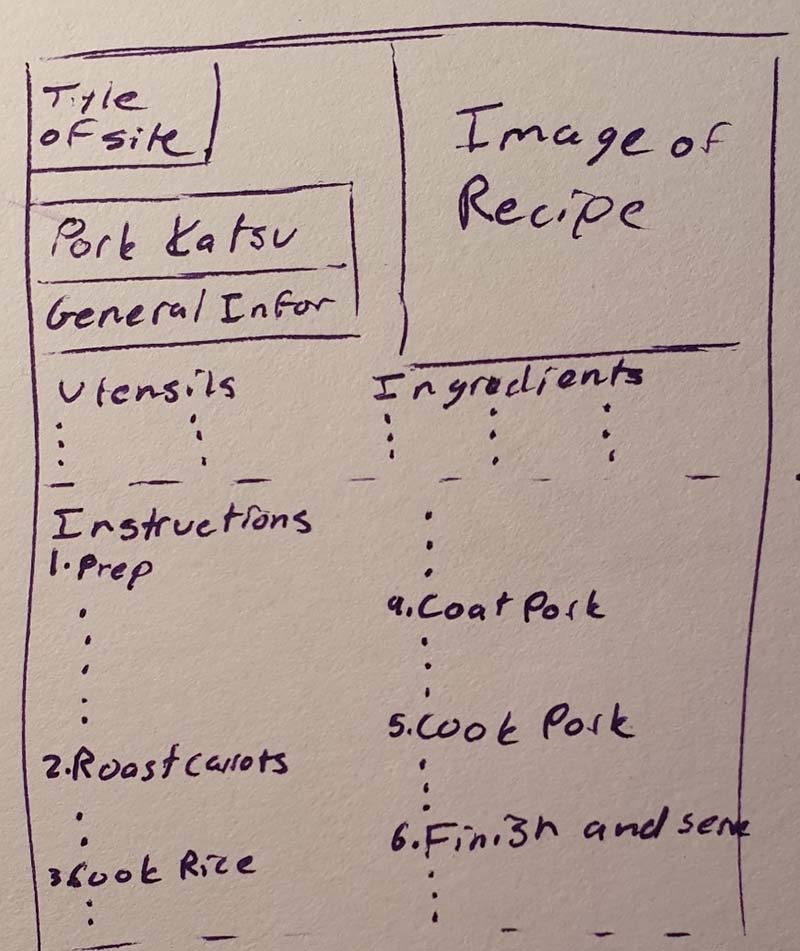 Title
of site
Image of
Recipe
Pork Katsu
General Infor
Utensils
Ingredients
Instructions
1. Prep
2. Roast carrots
3. Cook Rice
4. Coat Pork
5. Cook Pork
6. Finish and serve